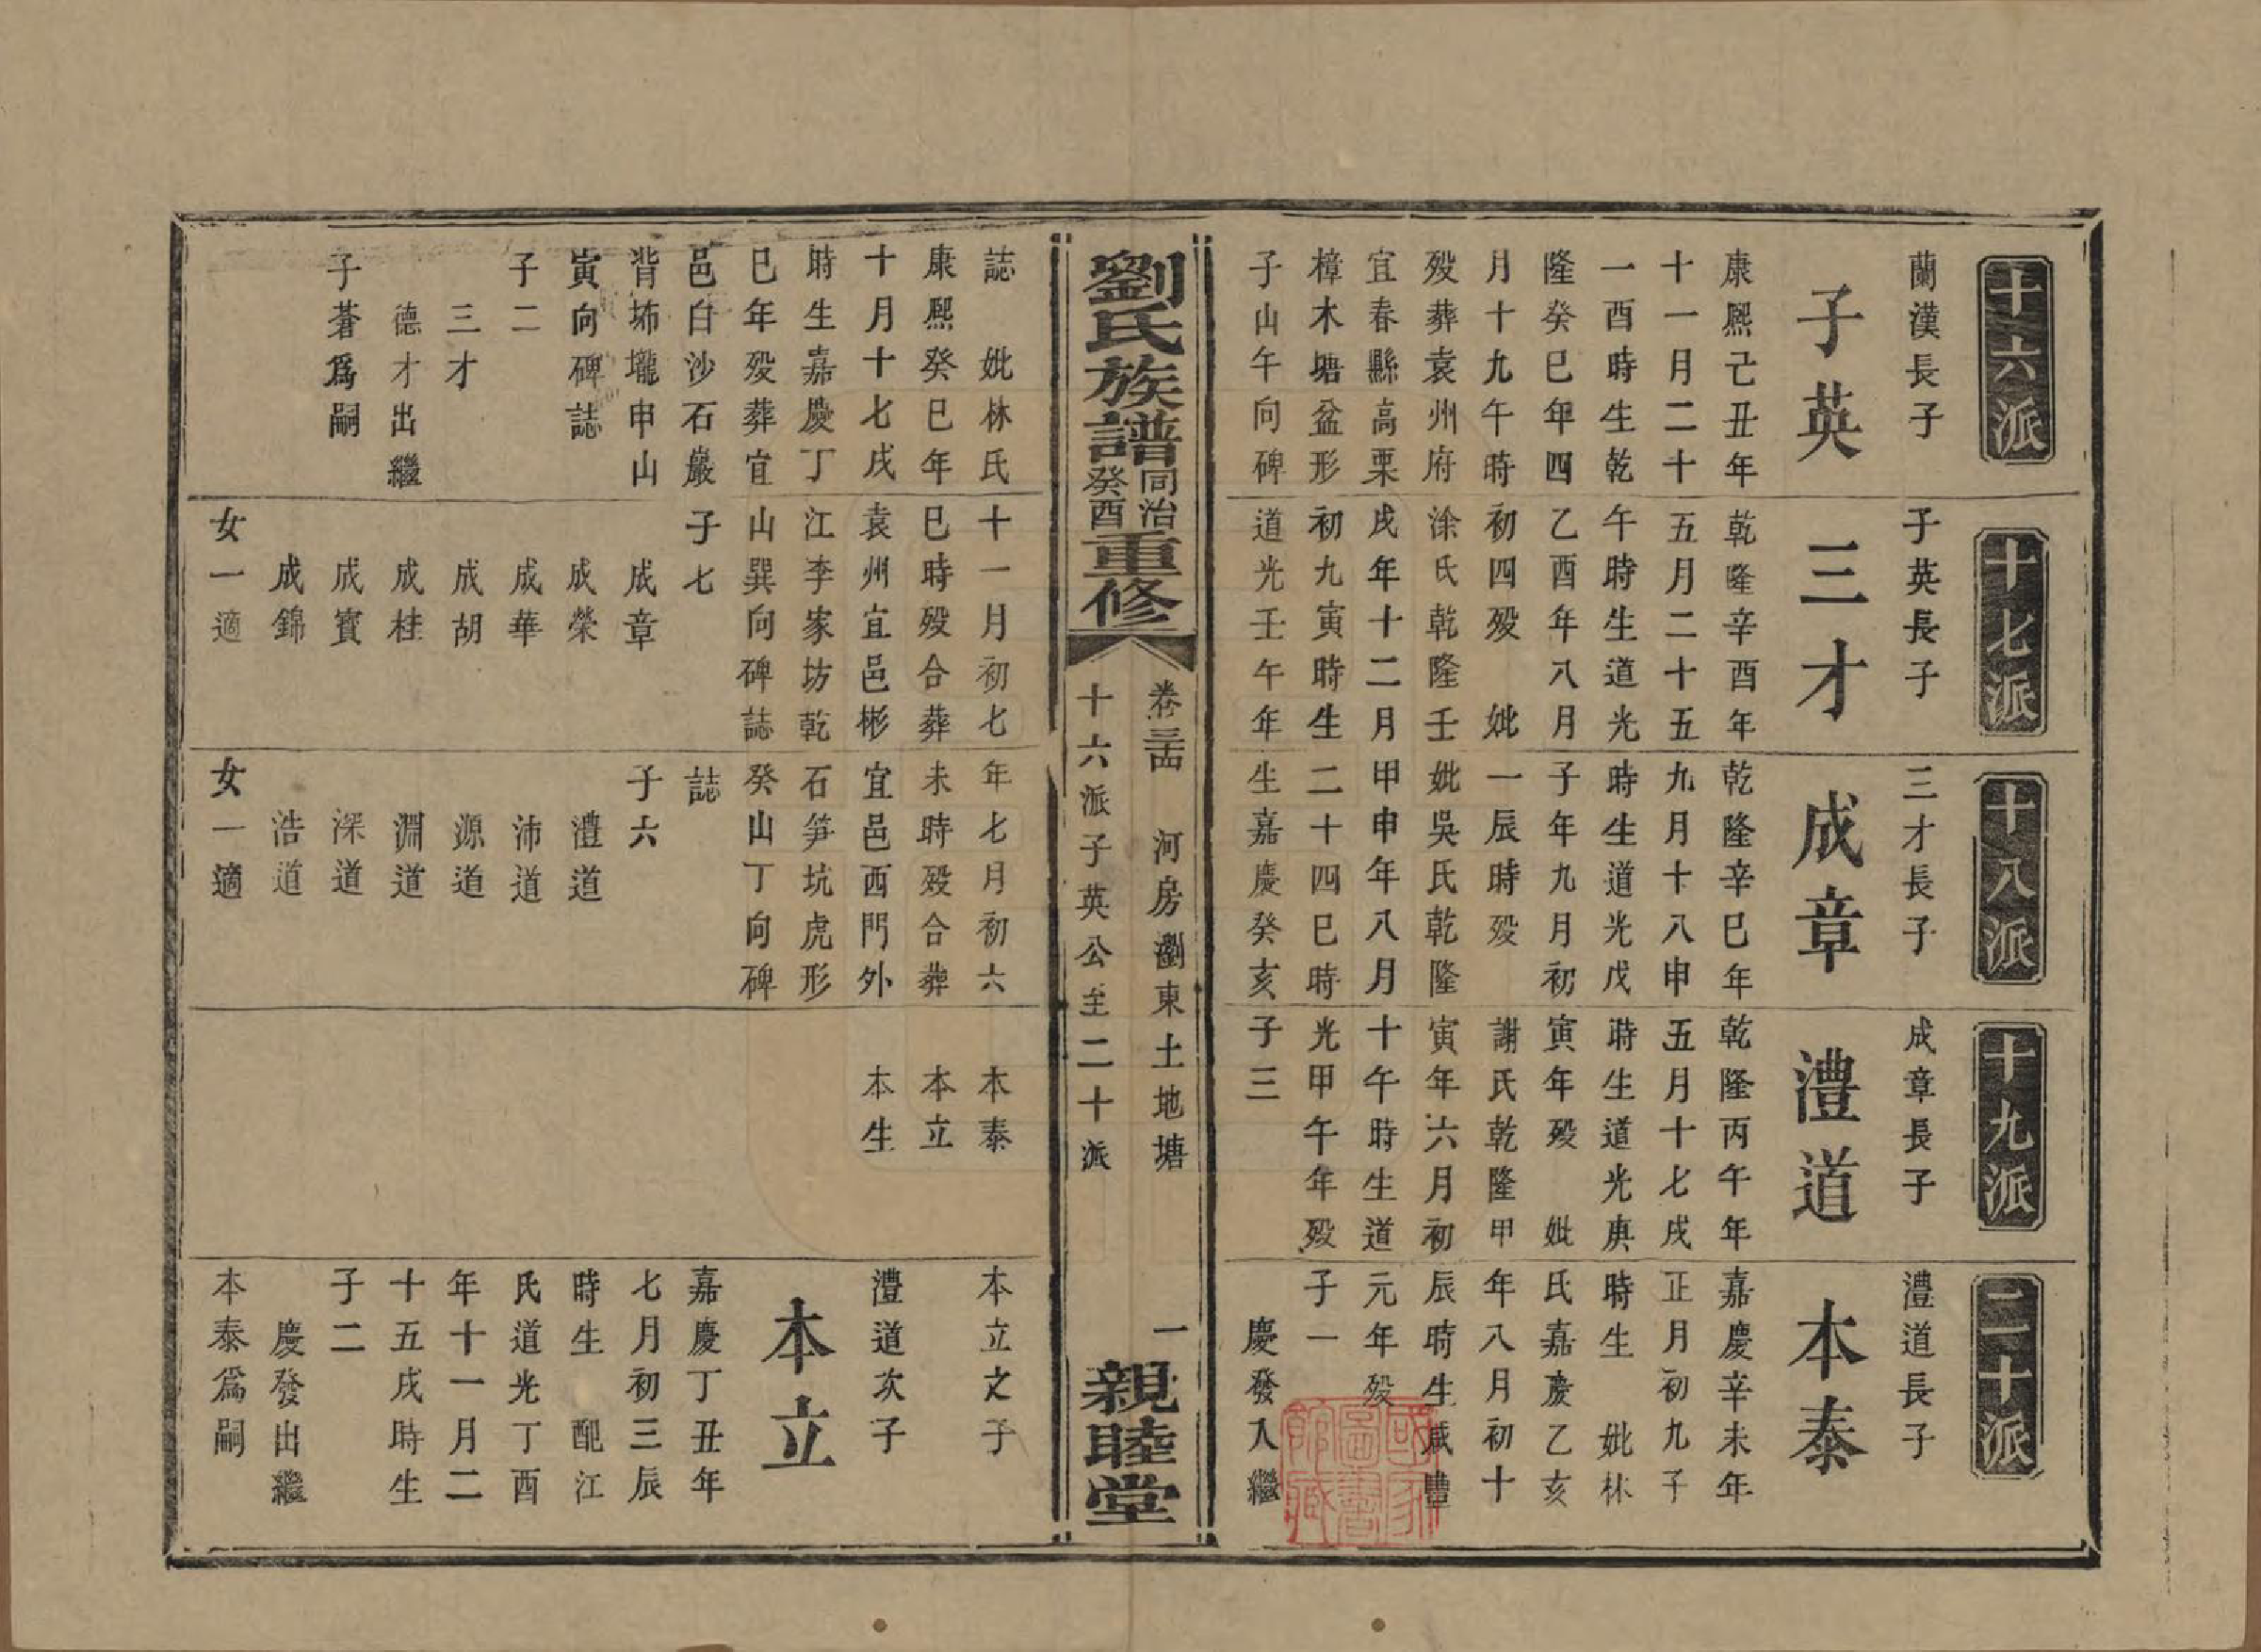 十六派
蘭漢長子
子英
康熙己丑年
十一月二十
一酉時生乾
隆癸巳年四
月十九午時
殁葬袁州府
宜春縣高栗
樟木塘盆形
子山午向碑
十七派
子英長子
三才
乾隆辛酉年
五月二十五
午時生道光
乙酉年八月
初四殁 妣
涂氏乾隆壬
戌年十二月
初九寅時生
道光壬午年
十八派
三才長子
成章
乾隆辛巳年
九月十八申
時生道光戊
子年九月初
一辰時殁
妣吳氏乾隆
甲申年八月
二十四巳時
生嘉慶癸亥
十九派
成章長子
澧道
乾隆丙午年
五月十七戌
時生道光庚
寅年殁 妣
謝氏乾隆甲
寅年六月初
十午時生道
光甲午年殁
子三
二十派
澧道長子
本泰
嘉慶辛未年
正月初九子
時生 妣林
氏嘉慶乙亥
年八月初十
辰時生咸豐
元年殁
子一
慶發入繼
劉氏族譜
同治
癸酉
重修
卷三古 河房瀏東土地塘 一
十六派子英公至二十派
親睦堂
誌 妣林氏
康熙癸巳年
十月十七戌
時生嘉慶丁
巳年殁葬宜
邑白沙石巖
背坳壠申山
寅向碑誌
子二
三才
德才出繼
子蒼爲嗣
十一月初七
巳時殁合葬
袁州宜邑彬
江李家坊乾
山巽向碑誌
子七
成章
成榮
成華
成胡
成桂
成賓
成錦
女一適
年七月初六
未時殁合葬
宜邑西門外
石笋坑虎形
癸山丁向碑
誌
子六
澧道
沛道
源道
淵道
深道
浩道
女一適
本泰
本立
本生
本立文子
澧道次子
本立
嘉慶丁丑年
七月初三辰
時生 配江
氏道光丁酉
年十一月二
十五戌時生
子二
慶發出繼
本泰爲嗣
國家圖書館藏